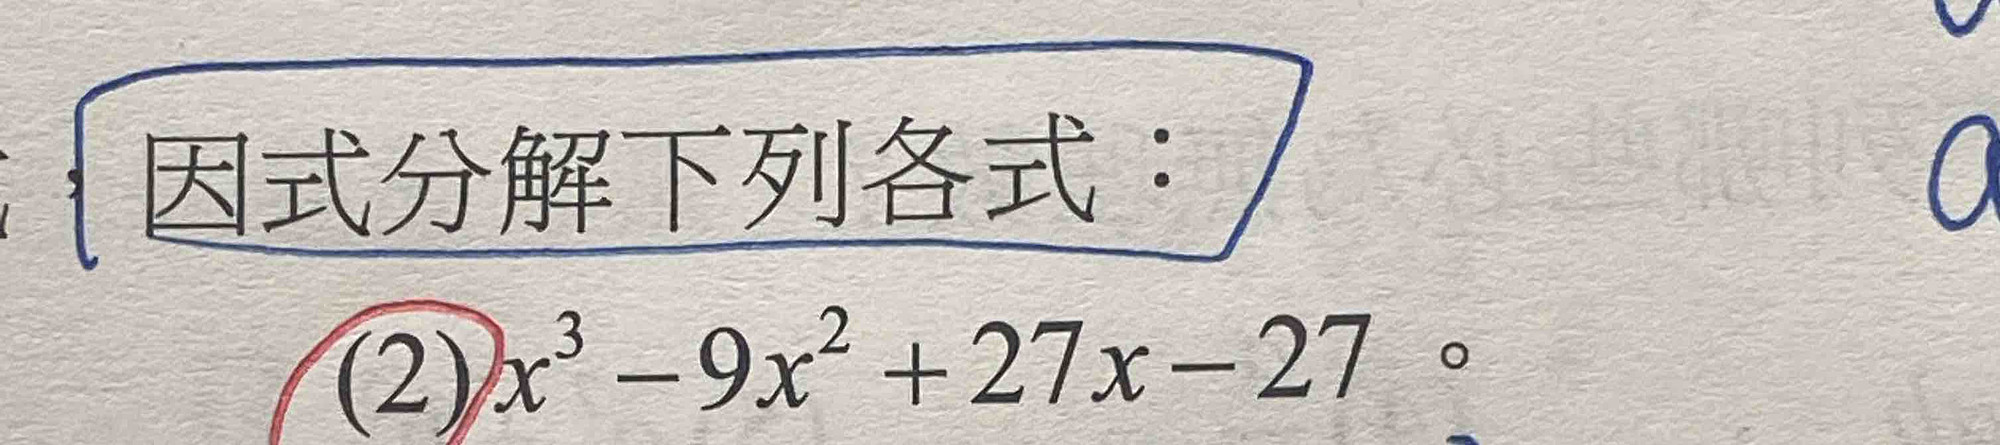 因式分解下列各式：
(2) x³ − 9x² + 27x − 27。